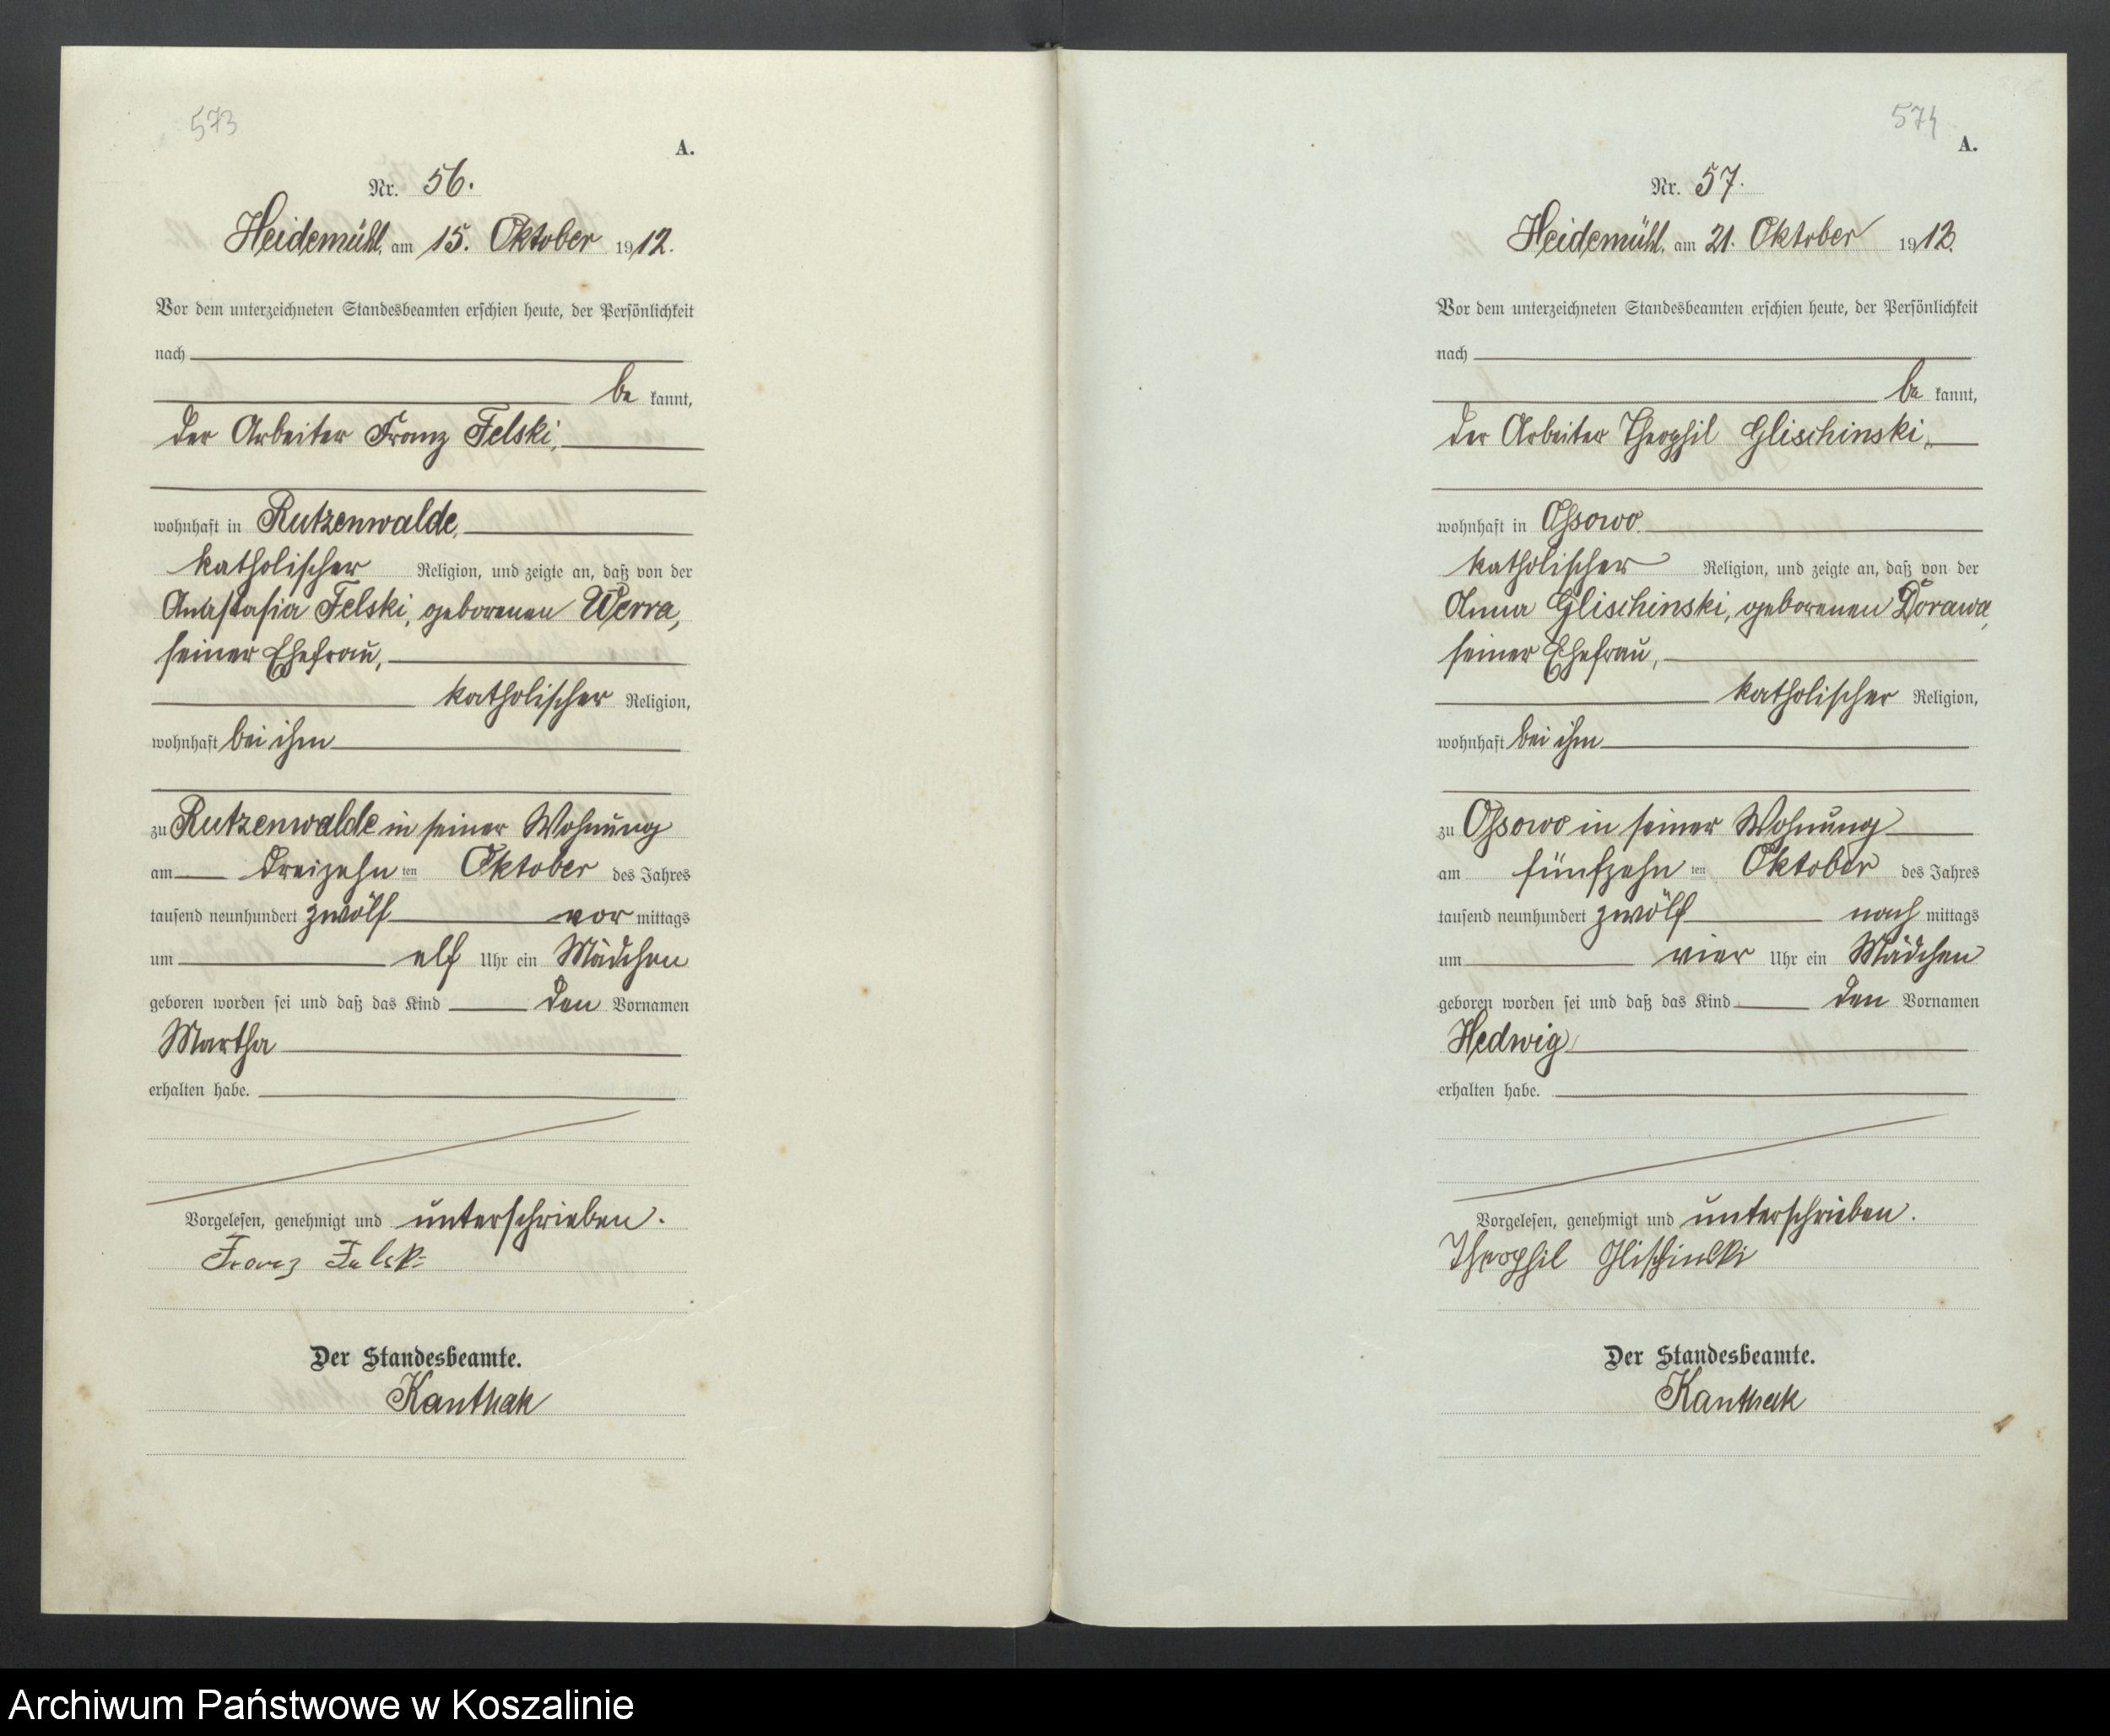 573
A.
Nr. 56.
Heidemühl, am 15. Oktober 1912.
Vor dem unterzeichneten Standesbeamten erschien heute, der Persönlichkeit
nach
be kannt,
der Arbeiter Franz Felski,
wohnhaft in Rutzenwalde,
katholischer Religion, und zeigte an, daß von der
Anastasia Felski, geborenen Werra,
seiner Ehefrau,
katholischer Religion,
wohnhaft bei ihm
zu Rutzenwalde in seiner Wohnung
am dreizehn ten Oktober des Jahres
tausend neunhundert zwölf vor mittags
um elf Uhr ein Mädchen
geboren worden sei und daß das Kind den Vornamen
Martha
erhalten habe.
Vorgelesen, genehmigt und unterschrieben.
Franz Felski
Der Standesbeamte.
Kanthak
574
A.
Nr. 57.
Heidemühl, am 21. Oktober 1912.
Vor dem unterzeichneten Standesbeamten erschien heute, der Persönlichkeit
nach
be kannt,
der Arbeiter Theophil Glischinski,
wohnhaft in Ossowo
katholischer Religion, und zeigte an, daß von der
Anna Glischinski, geborenen Dorawa,
seiner Ehefrau,
katholischer Religion,
wohnhaft bei ihm
zu Ossowo in seiner Wohnung
am fünfzehn ten Oktober des Jahres
tausend neunhundert zwölf nach mittags
um vier Uhr ein Mädchen
geboren worden sei und daß das Kind den Vornamen
Hedwig
erhalten habe.
Vorgelesen, genehmigt und unterschrieben.
Theophil Glischinski
Der Standesbeamte.
Kanthak
Archiwum Państwowe w Koszalinie